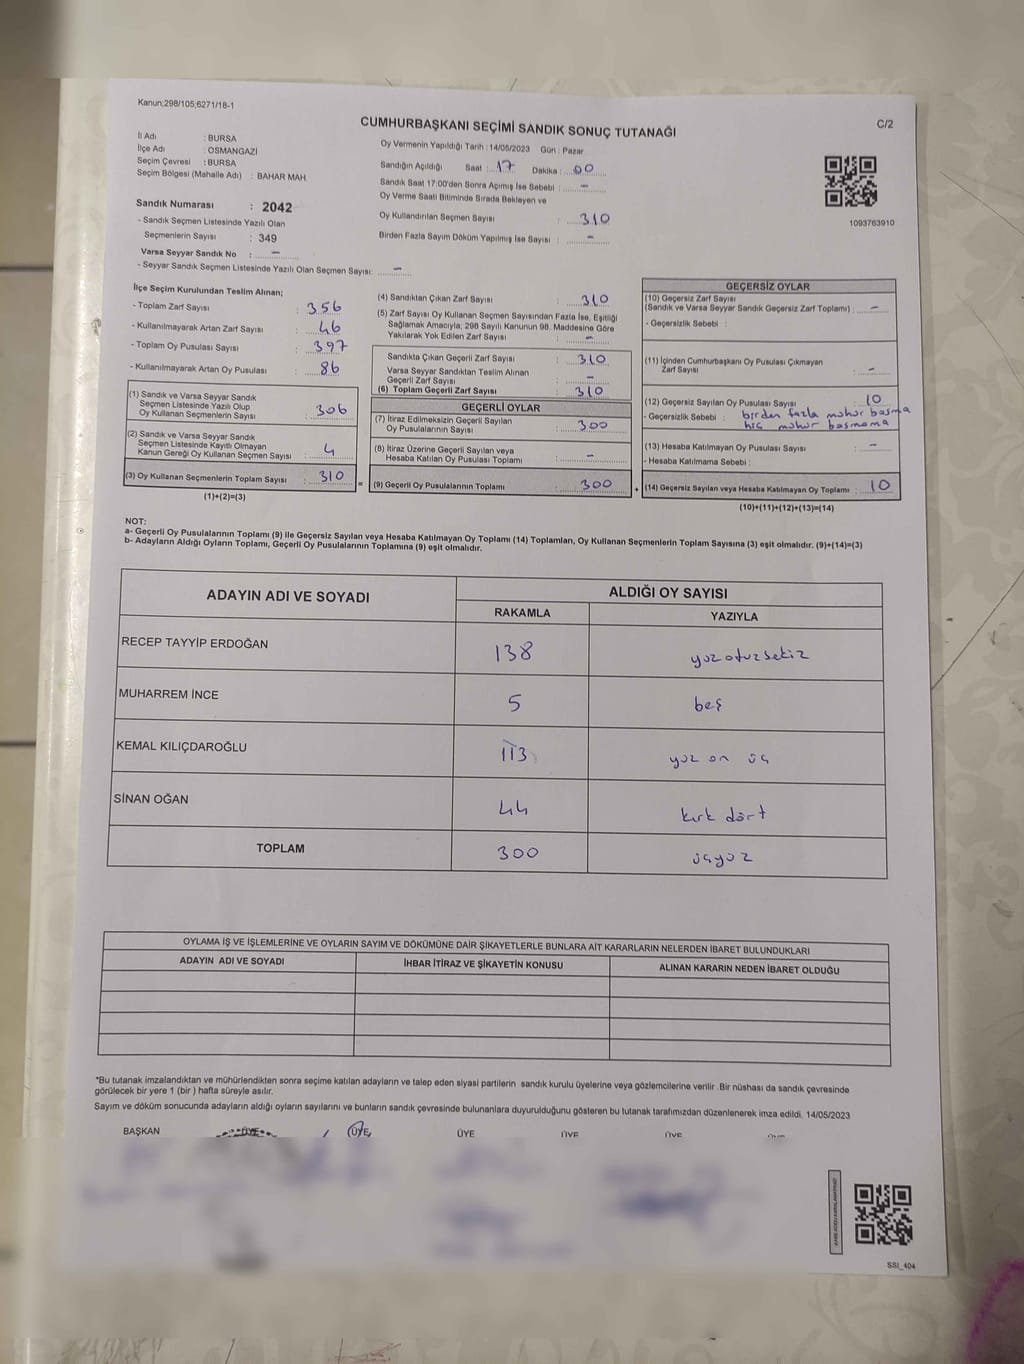 Kanun;298/105;6271/18-1
C/2
CUMHURBAŞKANI SEÇİMİ SANDIK SONUÇ TUTANAĞI
İl Adı : BURSA
İlçe Adı : OSMANGAZİ
Seçim Çevresi : BURSA
Seçim Bölgesi (Mahalle Adı) : BAHAR MAH.
Sandık Numarası : 2042
- Sandık Seçmen Listesinde Yazılı Olan
Seçmenlerin Sayısı : 349
Varsa Seyyar Sandık No : -
- Seyyar Sandık Seçmen Listesinde Yazılı Olan Seçmen Sayısı: -
Oy Vermenin Yapıldığı Tarih : 14/05/2023 Gün : Pazar
Sandığın Açıldığı Saat : 17 Dakika : 00
Sandık Saat 17:00'den Sonra Açımış İse Sebebi : -
Oy Verme Saati Bitiminde Sırada Bekleyen ve
Oy Kullandırılan Seçmen Sayısı : 310
Birden Fazla Sayım Döküm Yapılmış İse Sayısı : -
1093763910
İlçe Seçim Kurulundan Teslim Alınan;
- Toplam Zarf Sayısı : 356
- Kullanılmayarak Artan Zarf Sayısı : 46
- Toplam Oy Pusulası Sayısı : 397
- Kullanılmayarak Artan Oy Pusulası : 86
(1) Sandık ve Varsa Seyyar Sandık
Seçmen Listesinde Yazılı Olup
Oy Kullanan Seçmenlerin Sayısı : 306
(2) Sandık ve Varsa Seyyar Sandık
Seçmen Listesinde Kayıtlı Olmayan
Kanun Gereği Oy Kullanan Seçmen Sayısı : 4
(3) Oy Kullanan Seçmenlerin Toplam Sayısı : 310
(1)+(2)=(3)
(4) Sandıktan Çıkan Zarf Sayısı : 310
(5) Zarf Sayısı Oy Kullanan Seçmen Sayısından Fazla İse, Eşitliği
Sağlamak Amacıyla; 298 Sayılı Kanunun 98. Maddesine Göre
Yakılarak Yok Edilen Zarf Sayısı : -
Sandıkta Çıkan Geçerli Zarf Sayısı : 310
Varsa Seyyar Sandıktan Teslim Alınan
Geçerli Zarf Sayısı : -
(6) Toplam Geçerli Zarf Sayısı : 310
GEÇERLİ OYLAR
(7) İtiraz Edilmeksizin Geçerli Sayılan
Oy Pusulalarının Sayısı : 300
(8) İtiraz Üzerine Geçerli Sayılan veya
Hesaba Katılan Oy Pusulası Toplamı : -
= (9) Geçerli Oy Pusulalarının Toplamı : 300
GEÇERSİZ OYLAR
(10) Geçersiz Zarf Sayısı
(Sandık ve Varsa Seyyar Sandık Geçersiz Zarf Toplamı) : -
- Geçersizlik Sebebi :
(11) İçinden Cumhurbaşkanı Oy Pusulası Çıkmayan
Zarf Sayısı : -
(12) Geçersiz Sayılan Oy Pusulası Sayısı : 10
- Geçersizlik Sebebi : birden fazla mühür basma
hiç mühür basmama
(13) Hesaba Katılmayan Oy Pusulası Sayısı : -
- Hesaba Katılmama Sebebi :
+ (14) Geçersiz Sayılan veya Hesaba Katılmayan Oy Toplamı : 10
(10)+(11)+(12)+(13)=(14)
NOT:
a- Geçerli Oy Pusulalarının Toplamı (9) ile Geçersiz Sayılan veya Hesaba Katılmayan Oy Toplamı (14) Toplamları, Oy Kullanan Seçmenlerin Toplam Sayısına (3) eşit olmalıdır. (9)+(14)=(3)
b- Adayların Aldığı Oyların Toplamı, Geçerli Oy Pusulalarının Toplamına (9) eşit olmalıdır.
ADAYIN ADI VE SOYADI ALDIĞI OY SAYISI
RAKAMLA YAZIYLA
RECEP TAYYİP ERDOĞAN 138 yüz otuz sekiz
MUHARREM İNCE 5 beş
KEMAL KILIÇDAROĞLU 113 yüz on üç
SİNAN OĞAN 44 kırk dört
TOPLAM 300 üçyüz
OYLAMA İŞ VE İŞLEMLERİNE VE OYLARIN SAYIM VE DÖKÜMÜNE DAİR ŞİKAYETLERLE BUNLARA AİT KARARLARIN NELERDEN İBARET BULUNDUKLARI
ADAYIN ADI VE SOYADI İHBAR İTİRAZ VE ŞİKAYETİN KONUSU ALINAN KARARIN NEDEN İBARET OLDUĞU
*Bu tutanak imzalandıktan ve mühürlendikten sonra seçime katılan adayların ve talep eden siyasi partilerin sandık kurulu üyelerine veya gözlemcilerine verilir .Bir nüshası da sandık çevresinde
görülecek bir yere 1 (bir ) hafta süreyle asılır.
Sayım ve döküm sonucunda adayların aldığı oyların sayılarını ve bunların sandık çevresinde bulunanlara duyurulduğunu gösteren bu tutanak tarafımızdan düzenlenerek imza edildi. 14/05/2023
BAŞKAN ÜYE ÜYE ÜYE ÜYE ÜYE
SSI_404